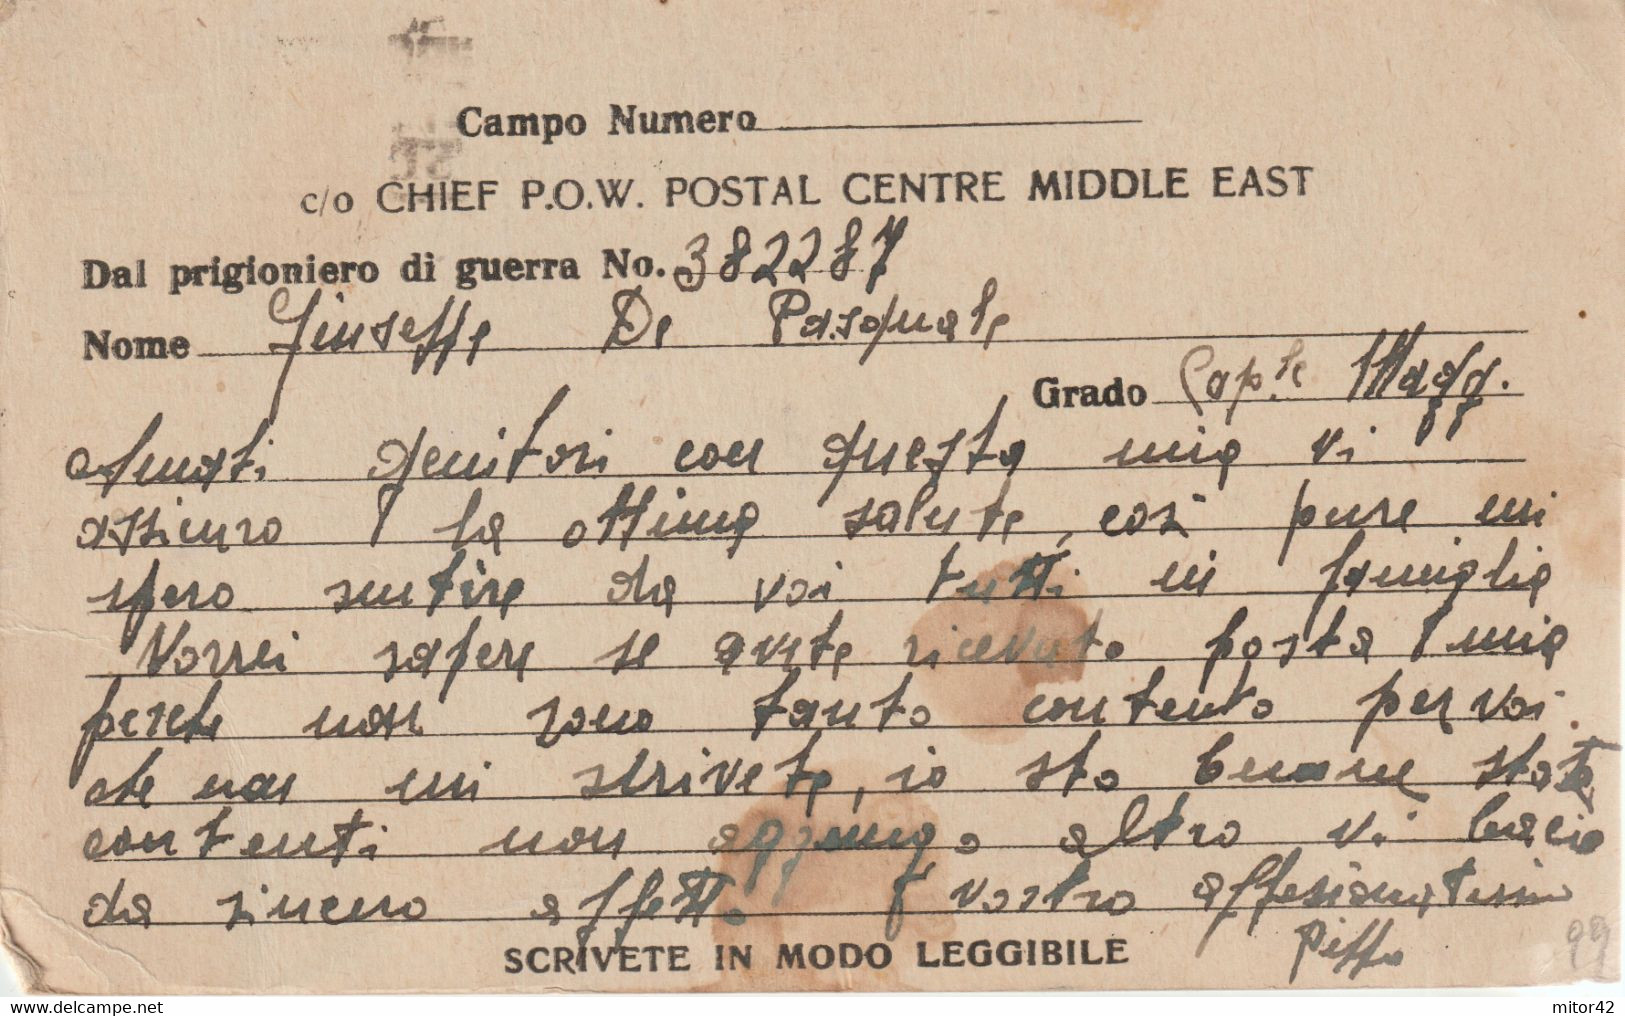 Campo Numero
c/o CHIEF P.O.W. POSTAL CENTRE MIDDLE EAST
Dal prigioniero di guerra No. 382287
Nome Giuseffe De Pasquale
Grado Cap.le Magg.
Amati genitori con questa mia vi
assicuro la ottima salute, così pure mi
spero sentire da voi tutti in famiglia
Vorrei sapere se avete ricevuto posta mia
perche non sono tanto contento per voi
che non mi scrivete, io sto bene state
contenti non aggiungo altro vi bacio
da sincero affetto vostro
Peppe
SCRIVETE IN MODO LEGGIBILE
www.delcampe.net
mitor42